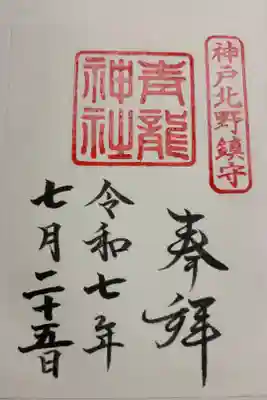 神戸北野鎮守
青龍
神社
奉拝
令和七年
七月二十五日